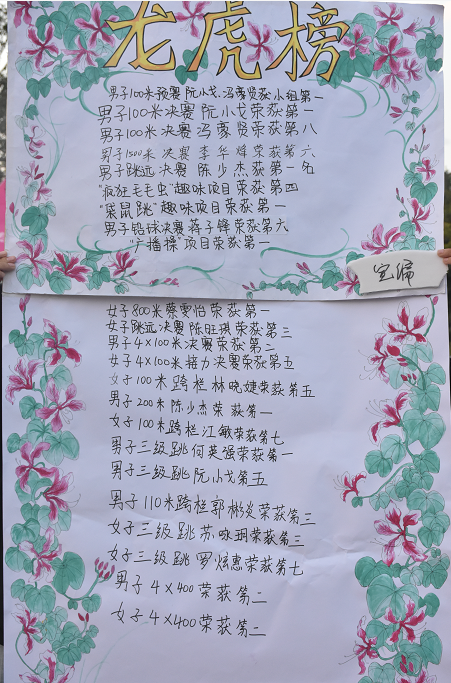 龙虎榜
男子100米预赛 阮小戈.冯家贤获小组第一
男子100米决赛 阮小戈荣获第一
男子100米决赛 冯家贤荣获第八
男子1500米 决赛 李华烽荣获第六
男子跳远 决赛 陈少杰获第一名
"疯狂毛毛虫"趣味项目荣获第四
"袋鼠跳"趣味项目荣获第一
男子铅球决赛 蒋子锋荣获第六
"广播操"项目荣获第一
女子800米蔡雯怡荣获第一
女子跳远决赛陈旺琪荣获第三
男子4×100米决赛荣获第二
女子4×100米接力决赛荣获第五
女子100米跨栏林晓婕荣获第五
男子200米 陈少杰荣获第一
女子100米跨栏江敏荣获第七
男子三级跳何英强荣获第一
男子三级跳阮小戈第五
男子110米跨栏郭彬炎荣获第三
女子三级跳苏咏玥荣获第三
女子三级跳 罗炫惠荣获第七
男子4×400荣获第二
女子4×400荣获第二